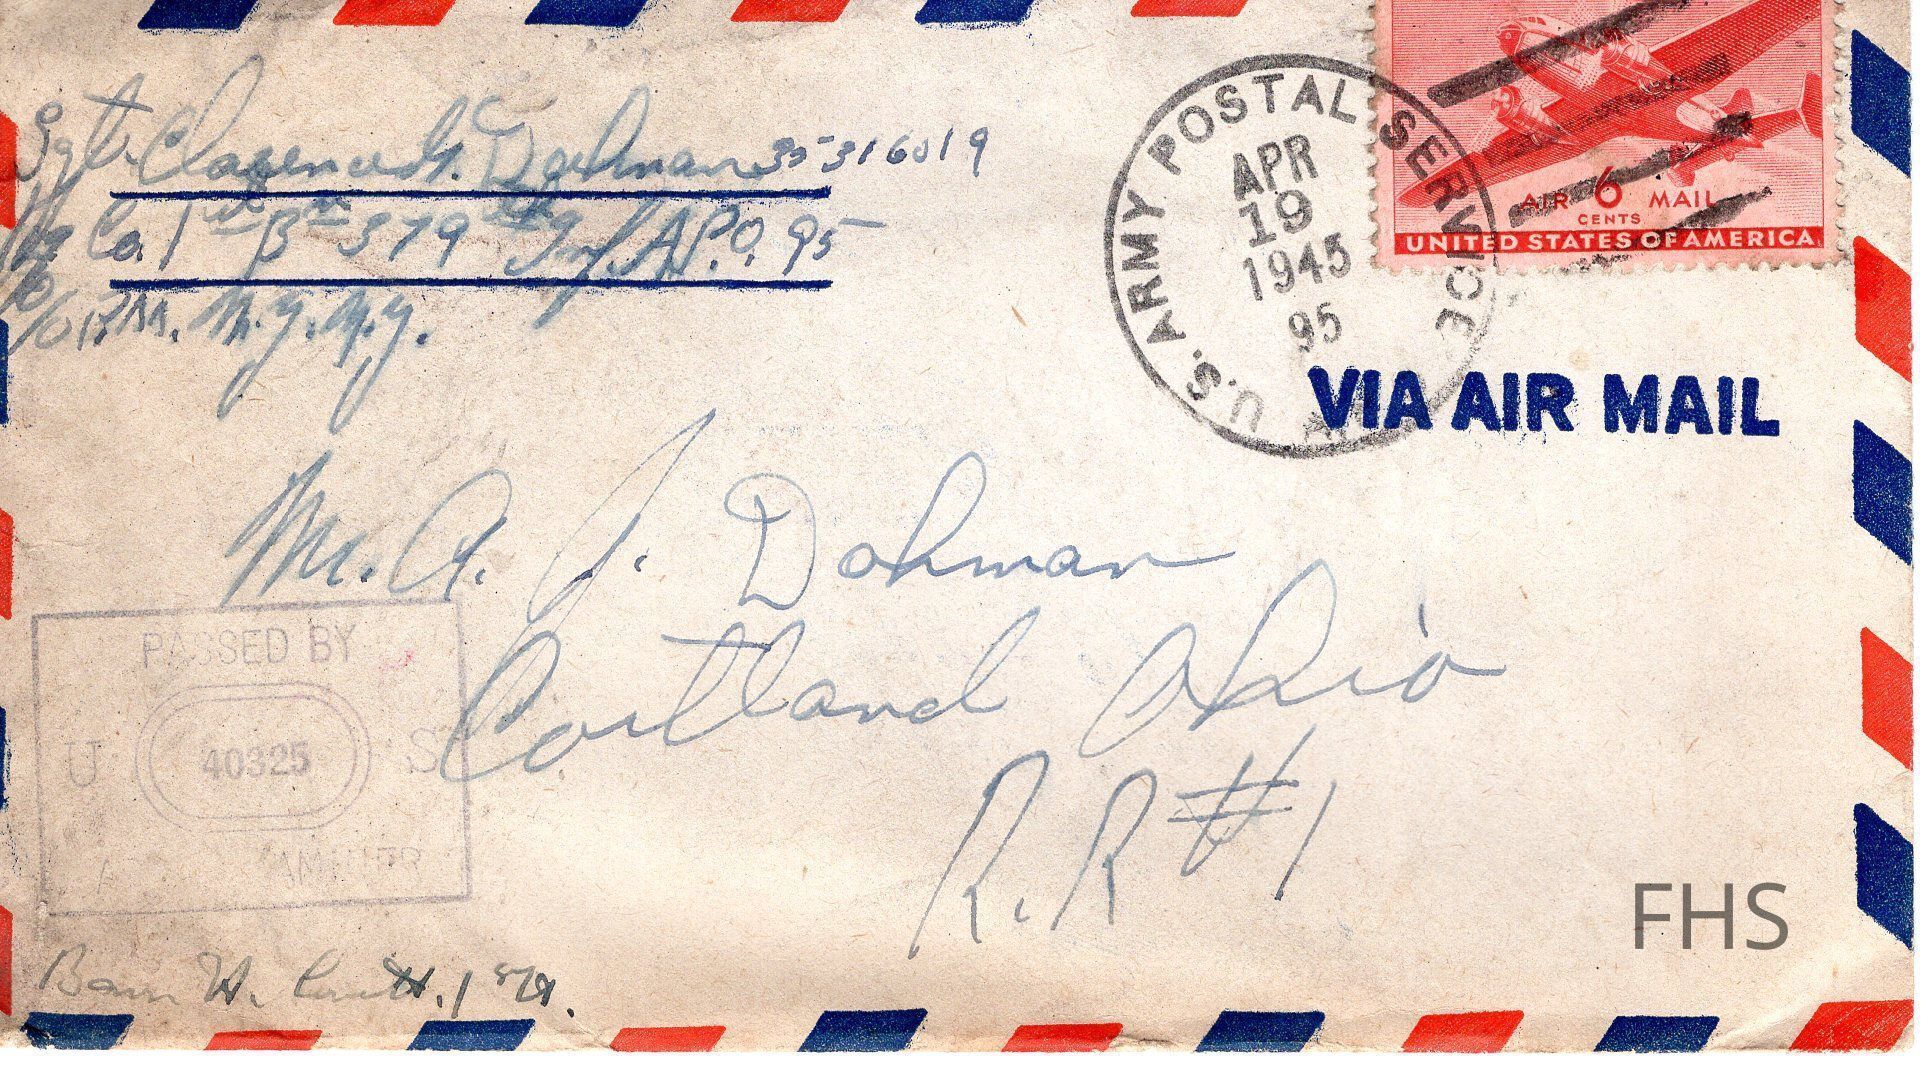 Sgt. Clarence H. Dohman 35316019
Hq Co. 1st Bn 379th Inf. A.P.O. 95
c/o P.M. N.Y. N.Y.
U.S. ARMY POSTAL SERVICE
APR
19
1945
95
AIR 6 MAIL
CENTS
UNITED STATES OF AMERICA
VIA AIR MAIL
Mr. A. J. Dohman
Cortland Ohio
R.R #1
PASSED BY
U 40325 S
W. 1st Lt.
FHS